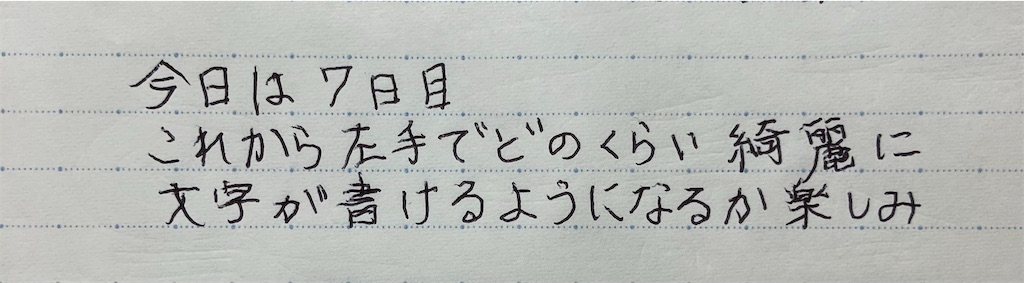 今日は7日目
これから左手でどのくらい綺麗に
文字が書けるようになるか楽しみ